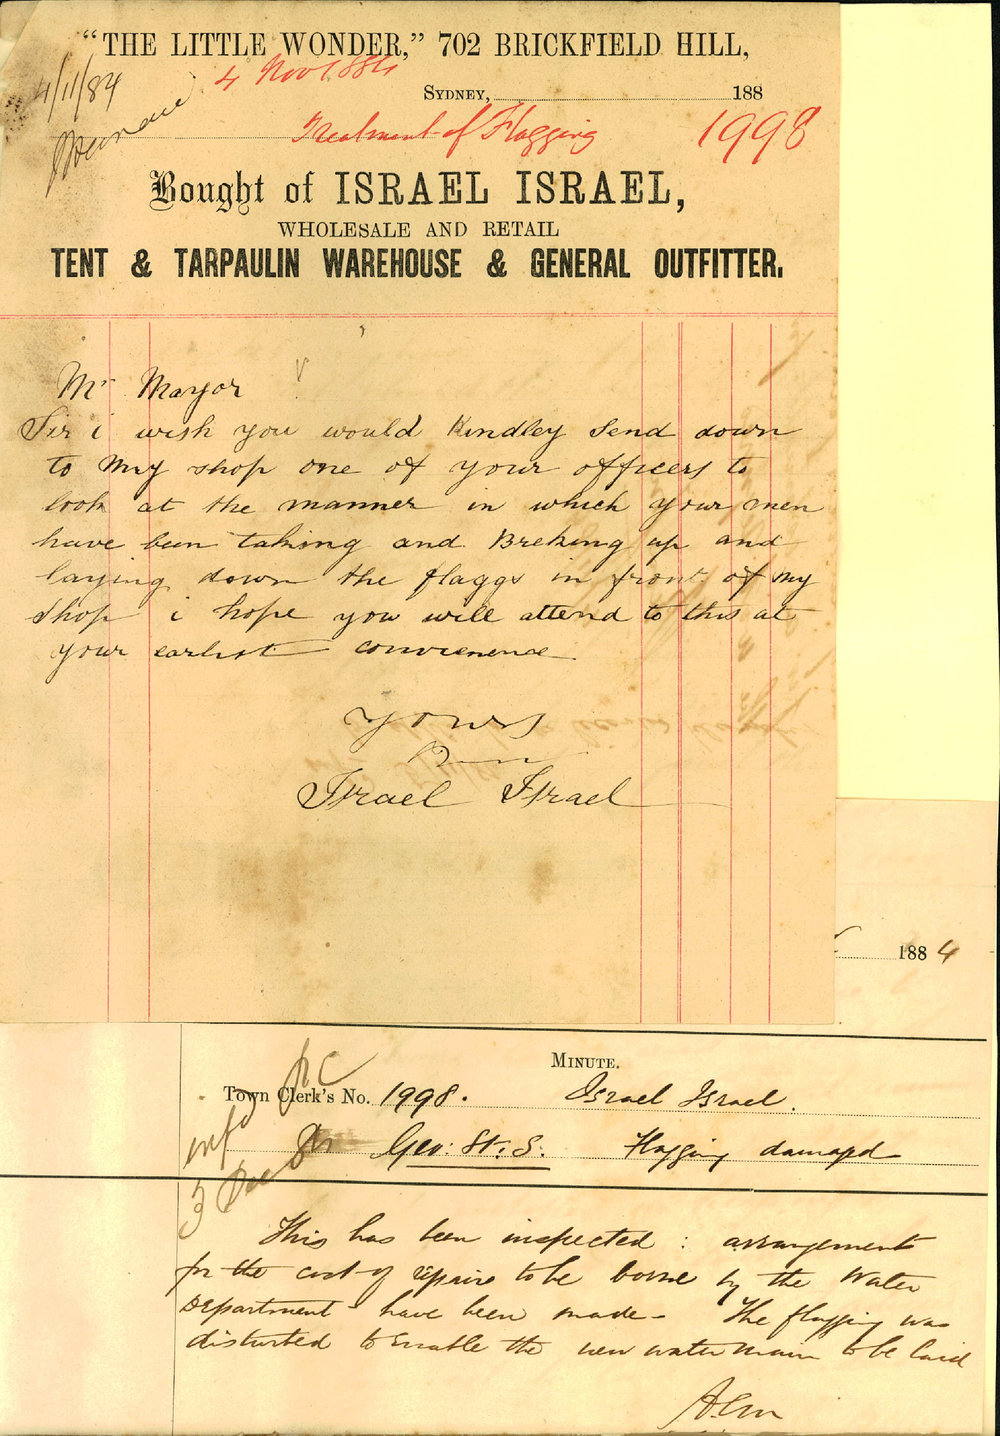 “THE LITTLE WONDER,” 702 BRICKFIELD HILL,
4/11/84
4 Nov 1884
SYDNEY, 188
Treatment of Flagging 1998
Bought of ISRAEL ISRAEL,
WHOLESALE AND RETAIL
TENT & TARPAULIN WAREHOUSE & GENERAL OUTFITTER.
Mr Mayor
Sir i wish you would Kindley Send down
to my shop one of your officers to
look at the manner in which your men
have been taking and Breking up and
laying down the flaggs in front of my
Shop i hope you will attend to this at
your earlist convienence
Yours
Israel Israel
1884
MINUTE.
Town Clerk's No. 1998. Israel Israel.
Geo: St. S. Flagging damaged
infd
3 Dec 84
This has been inspected : arrangements
for the cost of repairs to be borne by the Water
Department have been made - The flagging was
disturbed to enable the new water main to be laid